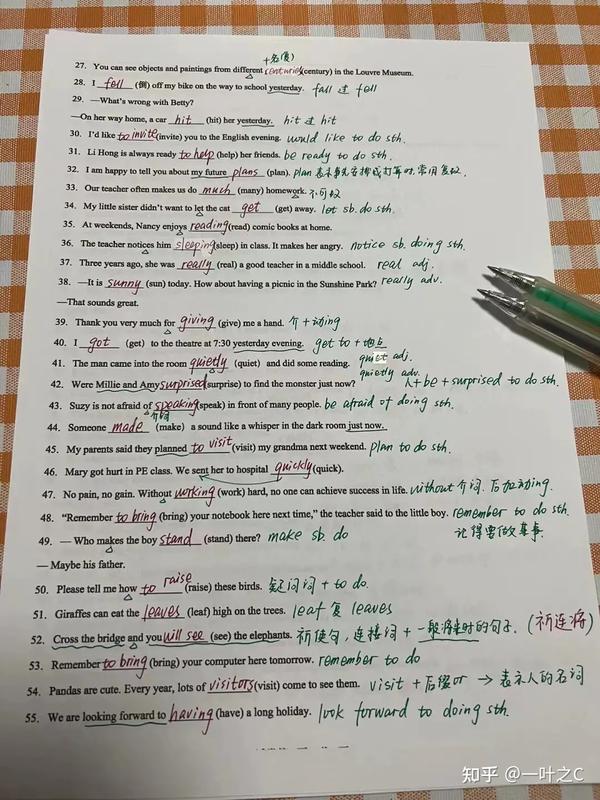 +名(复)
27. You can see objects and paintings from different centuries (century) in the Louvre Museum.
28. I fell (倒) off my bike on the way to school yesterday. fall 过 fell
29. —What's wrong with Betty?
—On her way home, a car hit (hit) her yesterday. hit 过 hit
30. I'd like to invite (invite) you to the English evening. would like to do sth.
31. Li Hong is always ready to help (help) her friends. be ready to do sth.
32. I am happy to tell you about my future plans (plan). plan 表示事先安排或打算时,常用复数.
33. Our teacher often makes us do much (many) homework. 不可数
34. My little sister didn't want to let the cat get (get) away. let sb. do sth.
35. At weekends, Nancy enjoys reading (read) comic books at home.
36. The teacher notices him sleeping (sleep) in class. It makes her angry. notice sb. doing sth.
37. Three years ago, she was really (real) a good teacher in a middle school. real adj.
38. —It is sunny (sun) today. How about having a picnic in the Sunshine Park? really adv.
—That sounds great.
39. Thank you very much for giving (give) me a hand. 介+动ing
40. I got (get) to the theatre at 7:30 yesterday evening. get to + 地点
41. The man came into the room quietly (quiet) and did some reading. quiet adj.
quietly adv.
42. Were Millie and Amy surprised (surprise) to find the monster just now? 人+be+surprised to do sth.
43. Suzy is not afraid of speaking (speak) in front of many people. be afraid of doing sth.
介词
44. Someone made (make) a sound like a whisper in the dark room just now.
45. My parents said they planned to visit (visit) my grandma next weekend. plan to do sth.
46. Mary got hurt in PE class. We sent her to hospital quickly (quick).
47. No pain, no gain. Without working (work) hard, no one can achieve success in life. without 介词. 后加动ing.
48. “Remember to bring (bring) your notebook here next time,” the teacher said to the little boy. remember to do sth.
记得要做某事
49. — Who makes the boy stand (stand) there? make sb. do
— Maybe his father.
50. Please tell me how to raise (raise) these birds. 疑问词 + to do.
51. Giraffes can eat the leaves (leaf) high on the trees. leaf 复 leaves
52. Cross the bridge and you will see (see) the elephants. 祈使句, 连接词 + 一般将来时的句子. (祈连将)
53. Remember to bring (bring) your computer here tomorrow. remember to do
54. Pandas are cute. Every year, lots of visitors (visit) come to see them. visit + 后缀or → 表示人的名词
55. We are looking forward to having (have) a long holiday. look forward to doing sth.
知乎 @一叶之C